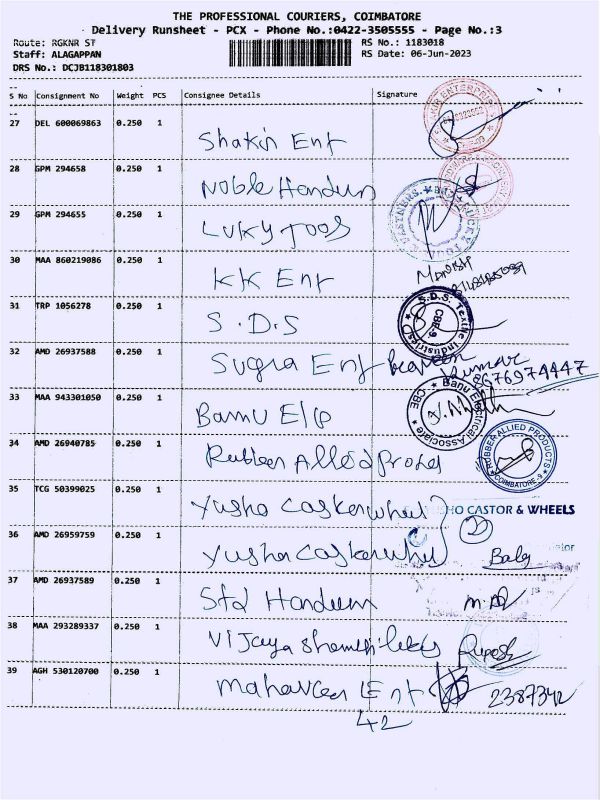 THE PROFESSIONAL COURIERS, COIMBATORE
Delivery Runsheet - PCX - Phone No.:0422-3505555 - Page No.:3
Route: RGKNR ST RS No.: 1183018
Staff: ALAGAPPAN RS Date: 06-Jun-2023
DRS No.: DCJB118301803
S No Consignment No Weight PCS Consignee Details Signature
27 DEL 600069863 0.250 1 Shakir Ent
28 GPM 294658 0.250 1 Noble Handum
29 GPM 294655 0.250 1 Luky Toos
30 MAA 860219086 0.250 1 KK Ent Manish
31 TRP 1056278 0.250 1 S.D.S S.D.S. Textile Industries CBE-9
32 AMD 26937588 0.250 1 Sugra Ent Kumar 8676974447
33 MAA 943301050 0.250 1 Banu E/p Banu Electrical Associate CBE
34 AMD 26940785 0.250 1 Rubber Allied RUBBER ALLIED PRODUCTS COIMBATORE-9
35 TCG 50399025 0.250 1 Yusho Caskerwheel HO CASTOR & WHEELS
36 AMD 26959759 0.250 1 Yusho Caskerwheel 2 Baby
37 AMD 26937589 0.250 1 Std Handum
38 MAA 293289337 0.250 1 Vijaya Rupesh
39 AGH 530120700 0.250 1 Mahaveer Ent 2387342
42